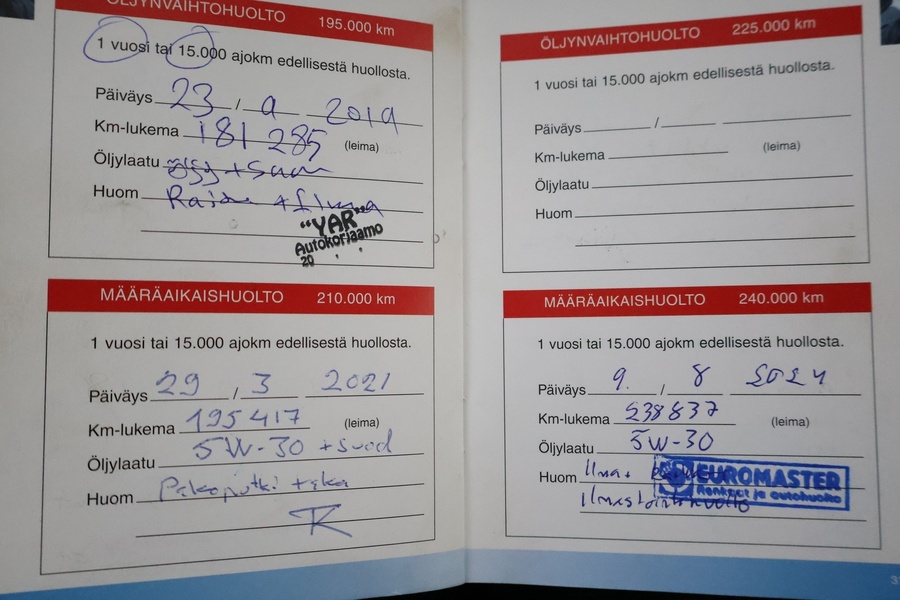 ÖLJYNVAIHTOHUOLTO 195.000 km
1 vuosi tai 15.000 ajokm edellisestä huollosta.
Päiväys 23 / 9 2019
Km-lukema 181 285 (leima)
Öljylaatu öljy + suod
Huom
"YAR"
Autokorjaamo
20 . .
MÄÄRÄAIKAISHUOLTO 210.000 km
1 vuosi tai 15.000 ajokm edellisestä huollosta.
Päiväys 29 / 3 2021
Km-lukema 195 417 (leima)
Öljylaatu 5W-30 + suod
Huom Pakoputki
ÖLJYNVAIHTOHUOLTO 225.000 km
1 vuosi tai 15.000 ajokm edellisestä huollosta.
Päiväys /
Km-lukema (leima)
Öljylaatu
Huom
MÄÄRÄAIKAISHUOLTO 240.000 km
1 vuosi tai 15.000 ajokm edellisestä huollosta.
Päiväys 9. / 8 2024
Km-lukema 238837 (leima)
Öljylaatu 5W-30
Huom Ilma+
EUROMASTER
Renkaat ja autohuolto
Ilmastointihuolto